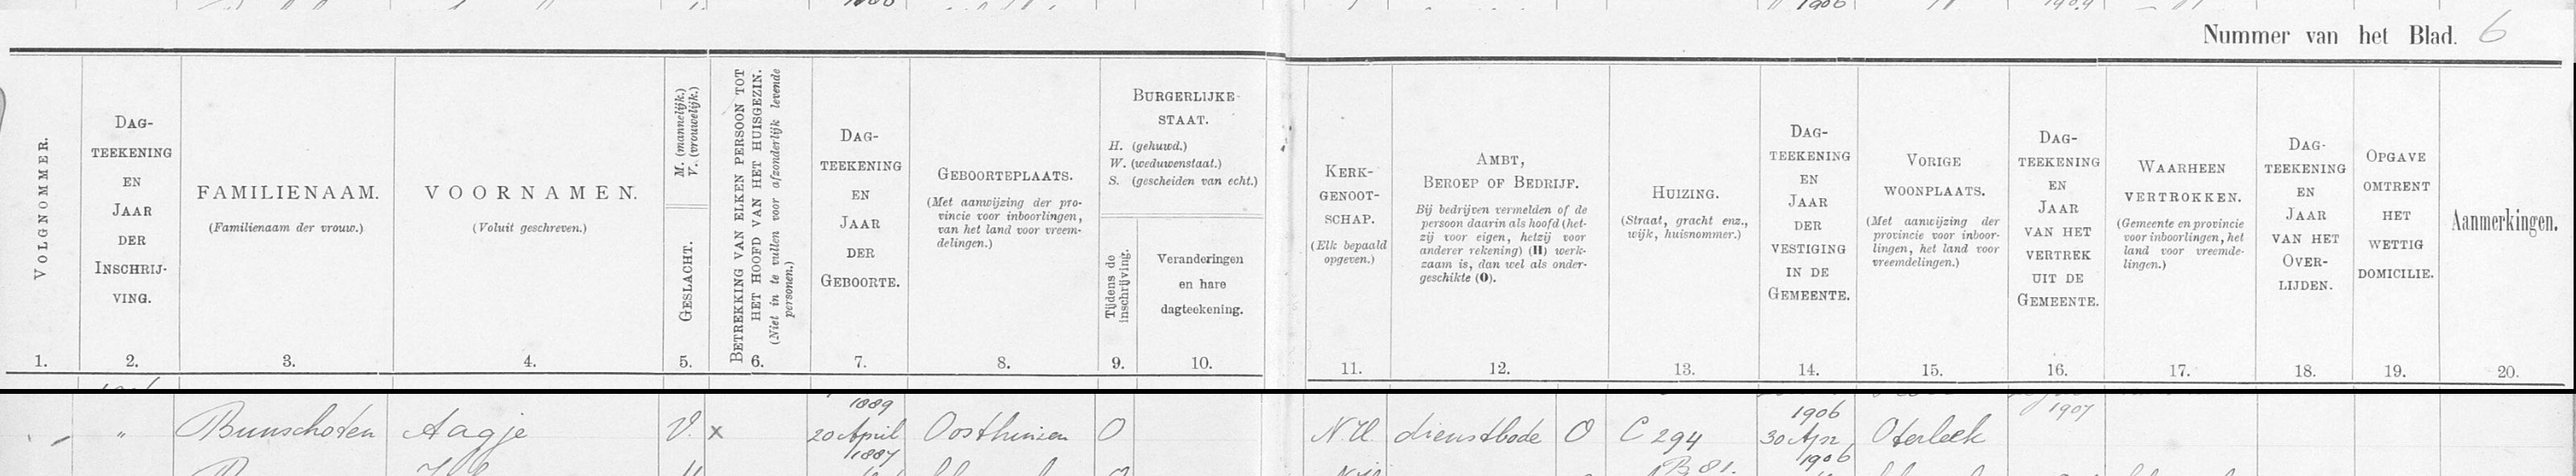 Nummer van het Blad. 6
VOLGNOMMER.
1.
DAG-
TEEKENING
EN
JAAR
DER
INSCHRIJ-
VING.
2.
FAMILIENAAM.
(Familienaam der vrouw.)
3.
VOORNAMEN.
(Voluit geschreven.)
4.
M. (mannelijk.)
V. (vrouwelijk.)
GESLACHT.
5.
BETREKKING VAN ELKEN PERSOON TOT
HET HOOFD VAN HET HUISGEZIN.
(Niet in te vullen voor afzonderlijk levende
personen.)
6.
DAG-
TEEKENING
EN
JAAR
DER
GEBOORTE.
7.
GEBOORTEPLAATS.
(Met aanwijzing der pro-
vincie voor inboorlingen,
van het land voor vreem-
delingen.)
8.
BURGERLIJKE
STAAT.
H. (gehuwd.)
W. (weduwenstaat.)
S. (gescheiden van echt.)
Tijdens de
inschrijving.
9.
Veranderingen
en hare
dagteekening.
10.
KERK-
GENOOT-
SCHAP.
(Elk bepaald
opgeven.)
11.
AMBT,
BEROEP OF BEDRIJF.
Bij bedrijven vermelden of de
persoon daarin als hoofd (het-
zij voor eigen, hetzij voor
anderer rekening) (H) werk-
zaam is, dan wel als onder-
geschikte (O).
12.
HUIZING.
(Straat, gracht enz.,
wijk, huisnommer.)
13.
DAG-
TEEKENING
EN
JAAR
DER
VESTIGING
IN DE
GEMEENTE.
14.
VORIGE
WOONPLAATS.
(Met aanwijzing der
provincie voor inboor-
lingen, het land voor
vreemdelingen.)
15.
DAG-
TEEKENING
EN
JAAR
VAN HET
VERTREK
UIT DE
GEMEENTE.
16.
WAARHEEN
VERTROKKEN.
(Gemeente en provincie
voor inboorlingen, het
land voor vreemde-
lingen.)
17.
DAG-
TEEKENING
EN
JAAR
VAN HET
OVER-
LIJDEN.
18.
OPGAVE
OMTRENT
HET
WETTIG
DOMICILIE.
19.
Aanmerkingen.
20.
1889 1906 1907
" Bunschoten Aagje V. x 20 April Oosthuizen O N.H. dienstbode O C 294 30 Apr. Oterleek
1887 B 81. 1906